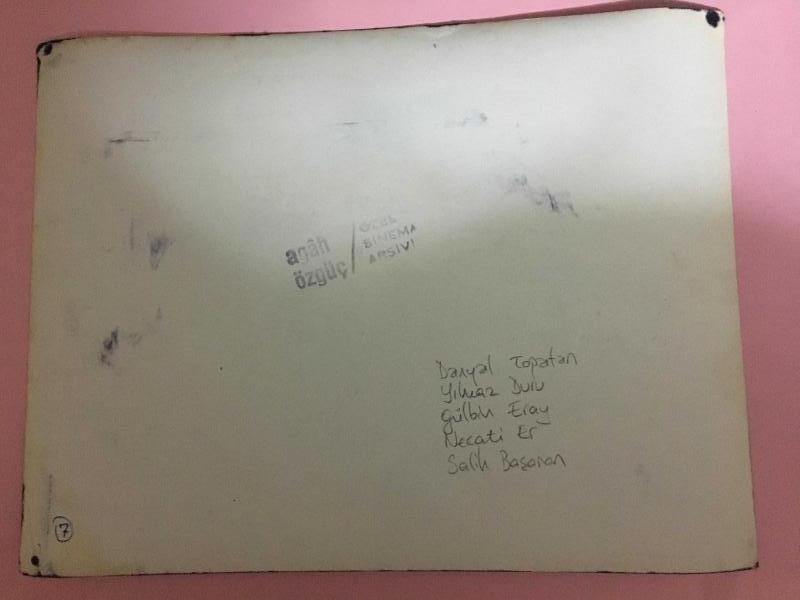 agâh
özgüç
ÖZEL
SİNEMA
ARŞİVİ
Danyal Topatan
Yılmaz Duru
Gülbin Eray
Necati Er
Salih Başaran
7